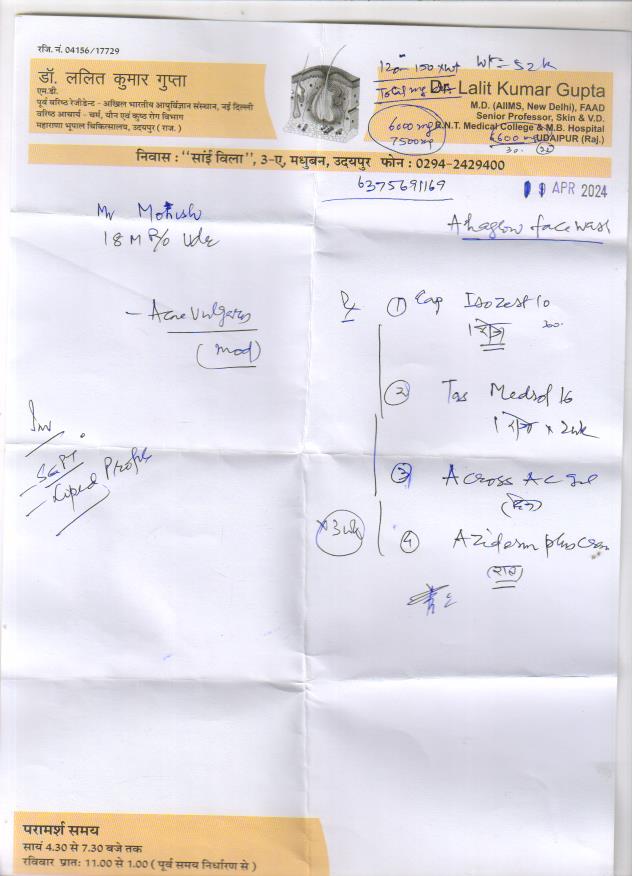 रजि. नं. 04156/17729
डॉ. ललित कुमार गुप्ता
एम.डी.
पूर्व वरिष्ठ रेजीडेन्ट - अखिल भारतीय आयुर्विज्ञान संस्थान, नई दिल्ली
वरिष्ठ आचार्य - चर्म, यौन एवं कुष्ठ रोग विभाग
महाराणा भूपाल चिकित्सालय, उदयपुर (राज.)
120-150 x wt wt = 52 k
Total mg
Dr. Lalit Kumar Gupta
M.D. (AIIMS, New Delhi), FAAD
Senior Professor, Skin & V.D.
6000 mg R.N.T. Medical College & M.B. Hospital
7500 mg 6600 mg UDAIPUR (Raj.)
30
निवास : "सांई विला", 3-ए, मधुबन, उदयपुर फोन : 0294-2429400
6375691169
09 APR 2024
Mr Mohish
18 M
Ahaglow face wash
- Acne vulgaris
(mod)
Rx
1 Cap Isozest 10
1 रोज
2 Tas Medrol 16
1 रोज x 2wk
Inv.
- SGPT
- Lipid Profile
3 Across AC gel
(दिन)
x 3 wk
4 Aziderm plus cream
(रात)
परामर्श समय
सायं 4.30 से 7.30 बजे तक
रविवार प्रातः 11.00 से 1.00 ( पूर्व समय निर्धारण से )